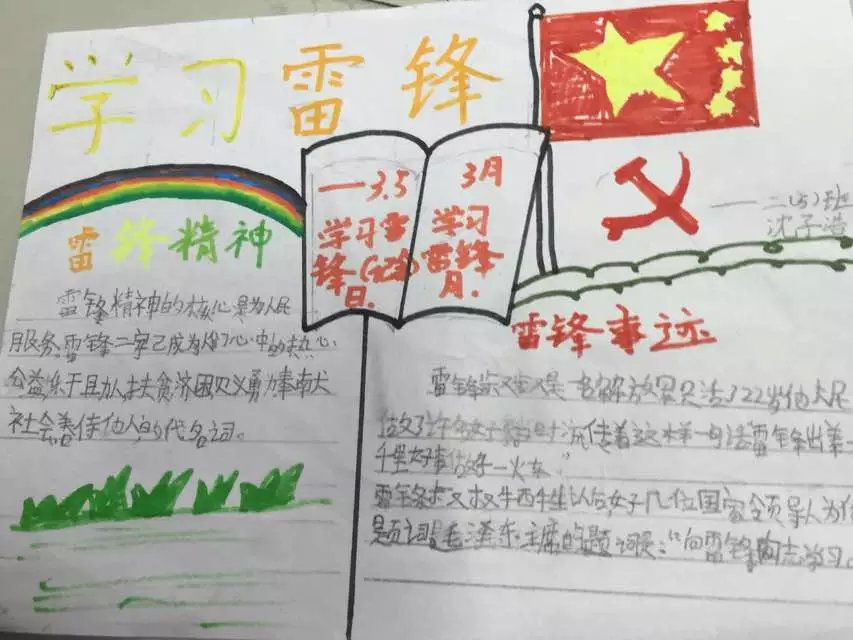 学习雷锋
一3.5
学习雷
锋(纪念)
日.
3月
学习
雷锋
月.
一二(5)班
沈子浩
雷锋精神
雷锋精神的核心是为人民
服务,雷锋二字已成为人们心中的热心
公益,乐于助人,扶贫济困见义勇为奉献
社会善待他人的代名词。
雷锋事迹
雷锋 是一名解放军 22岁他为人民
做了许多好事当时流传着这样一句话雷锋出差一
千里好事做好一火车。”
雷锋 牺牲以后 几位国家领导人为他
题词 毛泽东主席的题词是:“向雷锋同志学习。